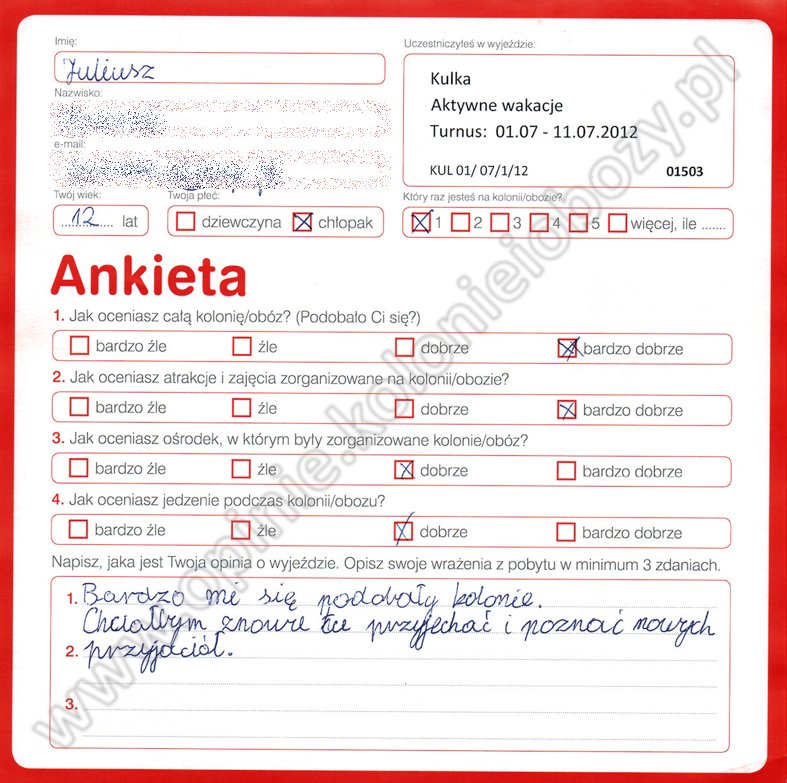 Imię:
Juliusz
Nazwisko:
e-mail:
Uczestniczyłeś w wyjeździe:
Kulka
Aktywne wakacje
Turnus: 01.07 - 11.07.2012
KUL 01/ 07/1/12 01503
Twój wiek:
12 lat
Twoja płeć:
dziewczyna chłopak
Który raz jesteś na kolonii/obozie?
1 2 3 4 5 więcej, ile .......
Ankieta
1. Jak oceniasz całą kolonię/obóz? (Podobało Ci się?)
bardzo źle źle dobrze bardzo dobrze
2. Jak oceniasz atrakcje i zajęcia zorganizowane na kolonii/obozie?
bardzo źle źle dobrze bardzo dobrze
3. Jak oceniasz ośrodek, w którym były zorganizowane kolonie/obóz?
bardzo źle źle dobrze bardzo dobrze
4. Jak oceniasz jedzenie podczas kolonii/obozu?
bardzo źle źle dobrze bardzo dobrze
Napisz, jaka jest Twoja opinia o wyjeździe. Opisz swoje wrażenia z pobytu w minimum 3 zdaniach.
1. Bardzo mi się podobały kolonie.
Chciałbym znowu tu przyjechać i poznać nowych
2. przyjaciół.
3.
www.opinie.kolonieiobozy.pl